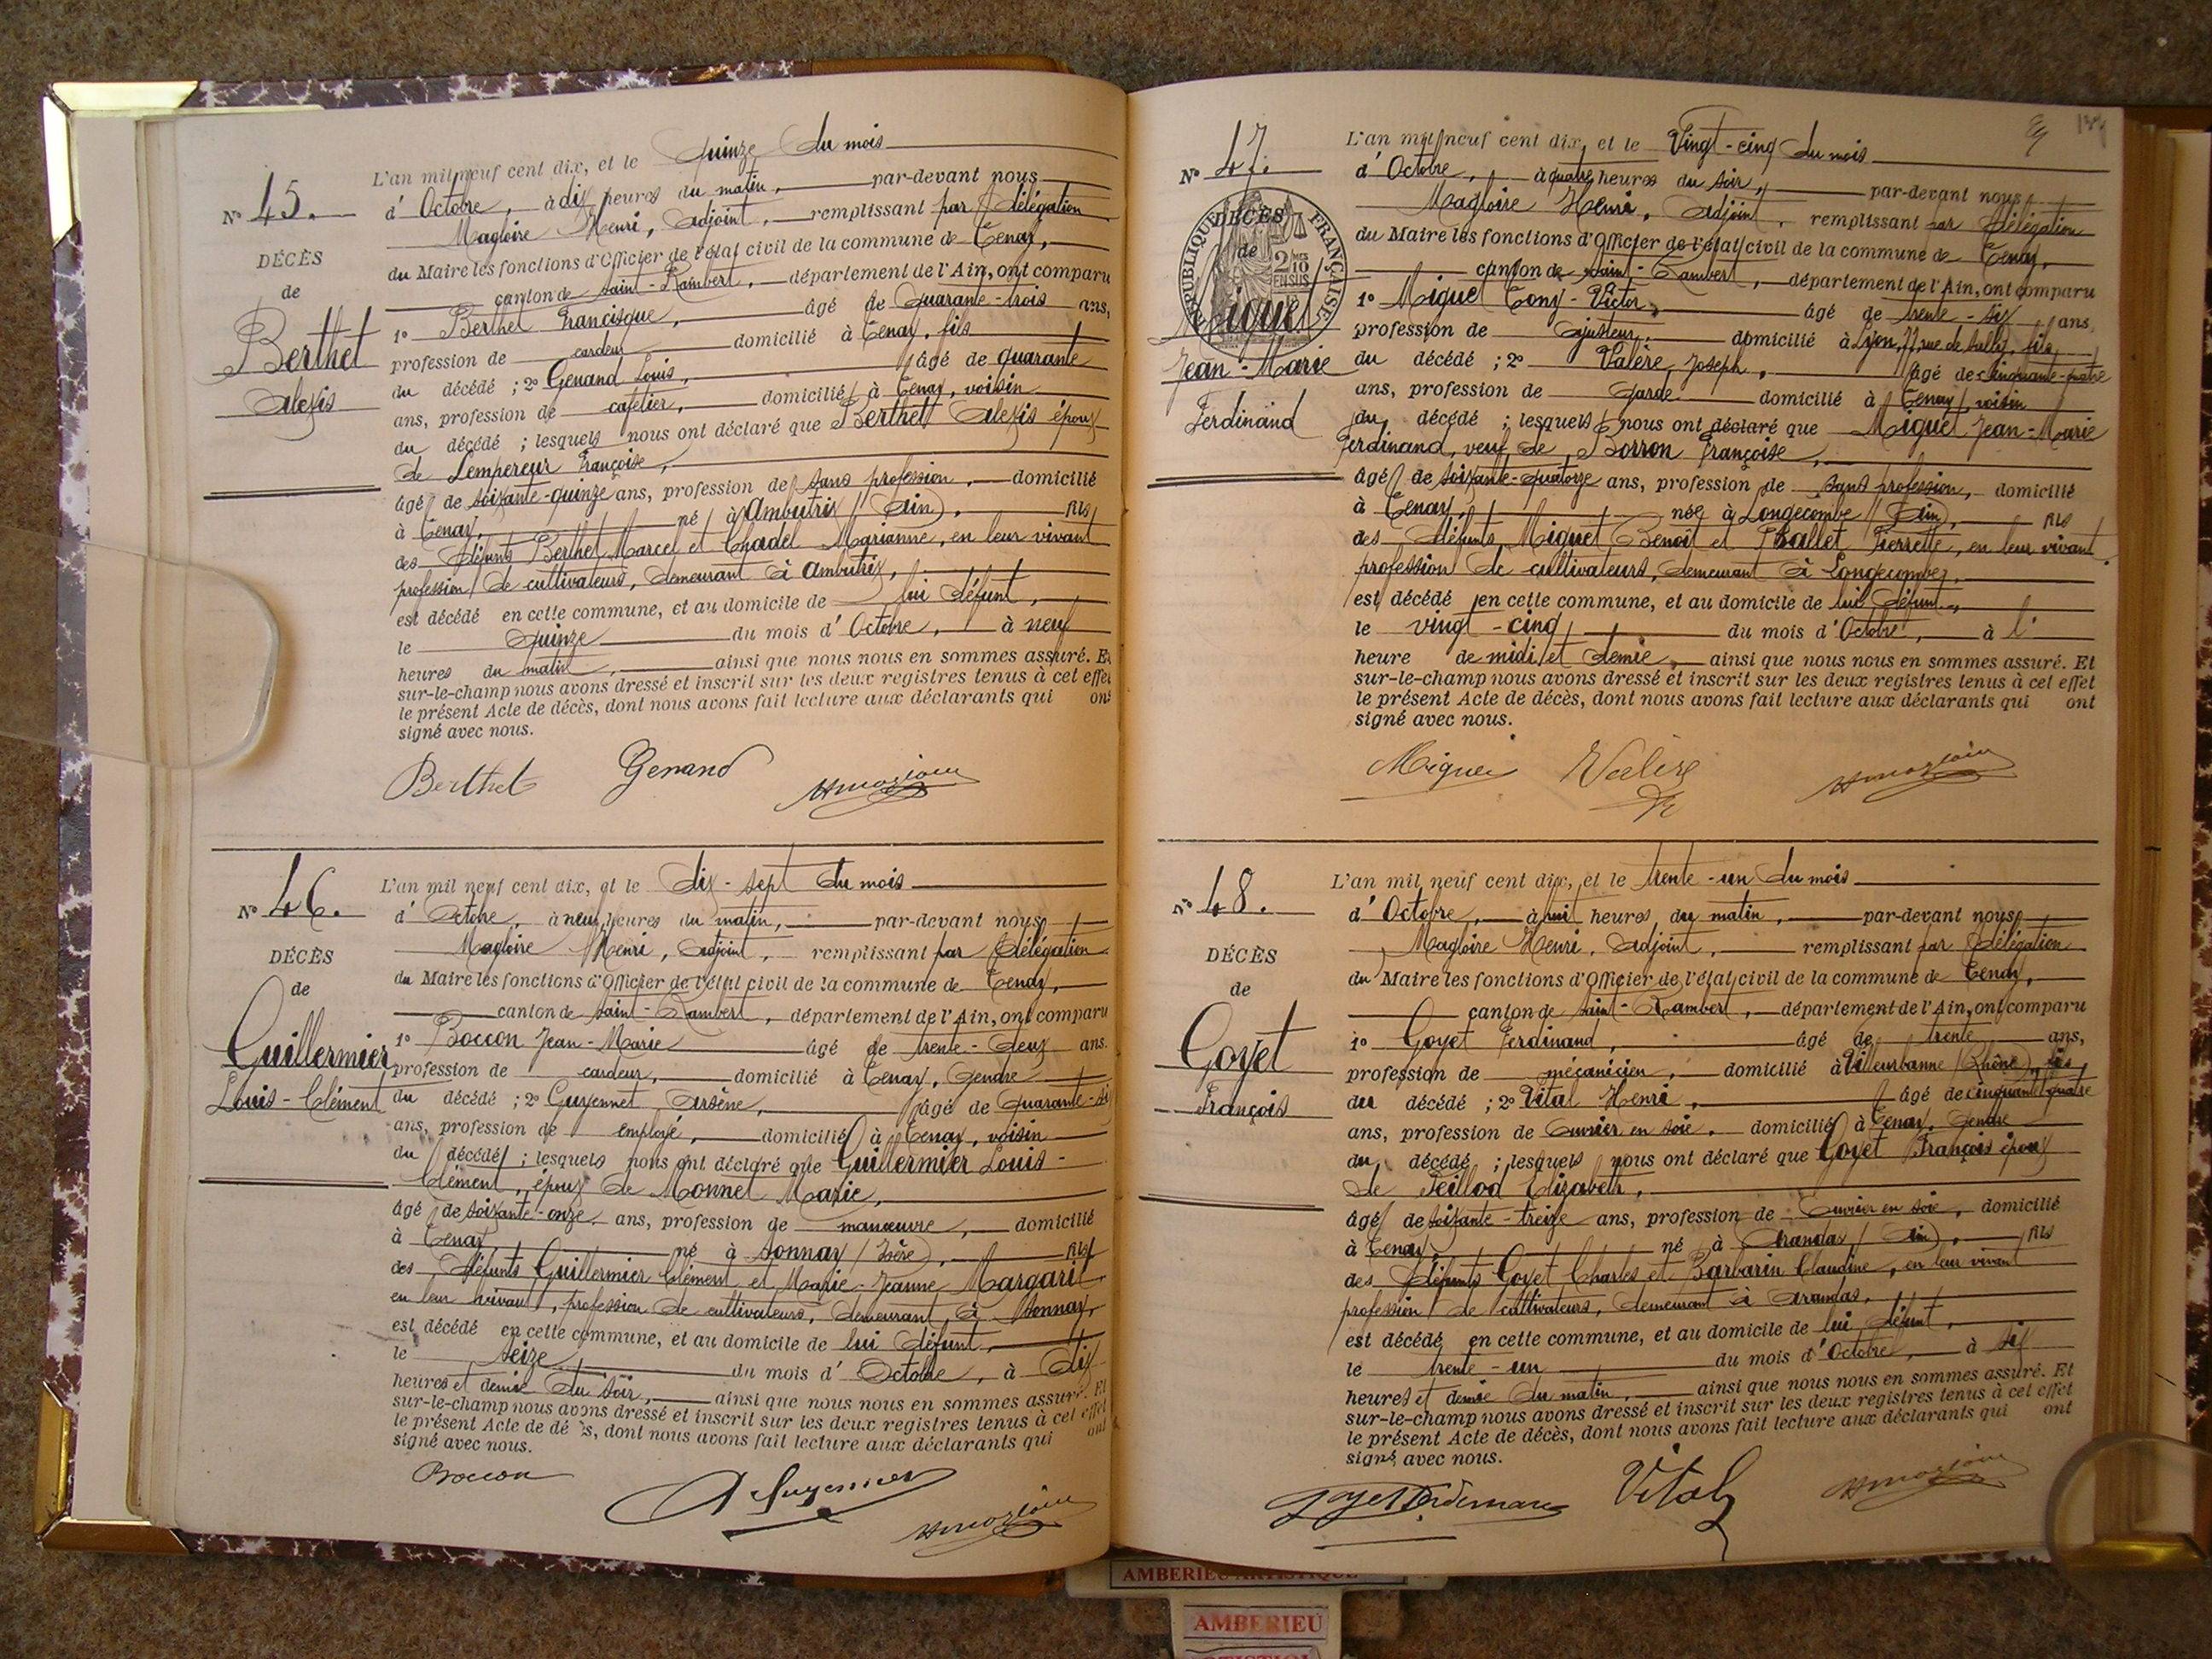 L'an mil neuf cent dix, et le Quinze du mois
N° 45. d'Octobre, à dix heures du matin, par-devant nous
Magloire Henri, adjoint, remplissant par délégation
DÉCÈS
de
Berthet
Alexis
du Maire les fonctions d'Officier de l'état civil de la commune de Tenay,
canton de Saint-Rambert, département de l'Ain, ont comparu
1° Berthet Francisque, âgé de Quarante-trois ans,
profession de cardeur domicilié à Tenay, fils
du décédé ; 2° Genand Louis, âgé de quarante
ans, profession de cafetier, domicilié à Tenay, voisin
du décédé ; lesquels nous ont déclaré que Berthet Alexis époux
de Lempereur Françoise,
âgé de soixante-quinze ans, profession de sans profession, domicilié
à Tenay, né à Ambutrix (Ain), fils
des défunts Berthet Marcel et Chadel Marianne, en leur vivant
profession de cultivateurs, demeurant à Ambutrix,
est décédé en cette commune, et au domicile de lui défunt,
le quinze du mois d'Octobre, à neuf
heures du matin, ainsi que nous nous en sommes assuré. Et
sur-le-champ nous avons dressé et inscrit sur les deux registres tenus à cet effet
le présent Acte de décès, dont nous avons fait lecture aux déclarants qui ont
signé avec nous.
Berthet Genand
L'an mil neuf cent dix, et le dix-sept du mois
N° 46. d'Octobre, à neuf heures du matin, par-devant nous
Magloire Henri, adjoint, remplissant par délégation
DÉCÈS
de
Guillermier
Louis-Clément
du Maire les fonctions d'Officier de l'état civil de la commune de Tenay,
canton de Saint-Rambert, département de l'Ain, ont comparu
1° Boccon Jean-Marie âgé de trente-deux ans.
profession de cardeur, domicilié à Tenay, Gendre
du décédé ; 2° Guyennet Arsène, âgé de Quarante-si
ans, profession de employé, domicilié à Tenay, voisin
du décédé ; lesquels nous ont déclaré que Guillermier Louis-
Clément, époux de Monnet Marie,
âgé de soixante-onze ans, profession de manœuvre, domicilié
à Tenay né à Sonnay (Isère), fils
des défunts Guillermier Clément et Marie-Jeanne Margarit
en leur vivant, profession de cultivateurs, demeurant à Sonnay,
est décédé en cette commune, et au domicile de lui défunt,
le seize du mois d'Octobre, à dix
heures et demie du soir, ainsi que nous nous en sommes assuré. Et
sur-le-champ nous avons dressé et inscrit sur les deux registres tenus à cet effet
le présent Acte de décès, dont nous avons fait lecture aux déclarants qui ont
signé avec nous.
Boccon
L'an mil neuf cent dix, et le Vingt-cinq du mois
N° 47. d'Octobre, à quatre heures du soir, par-devant nous
Magloire Henri, adjoint, remplissant par délégation
RÉPUBLIQUE FRANÇAISE
2/10 EN SUS
DÉCÈS
de
Miguet
Jean-Marie
Ferdinand
du Maire les fonctions d'Officier de l'état civil de la commune de Tenay,
canton de Saint-Rambert, département de l'Ain, ont comparu
1° Miguet Tony-Victor, âgé de trente-six ans,
profession de Ajusteur, domicilié à Lyon, 77, rue de Sully, fils
du décédé ; 2° Valère Joseph, âgé de cinquante-quatre
ans, profession de Garde domicilié à Tenay, voisin
du décédé ; lesquels nous ont déclaré que Miguet Jean-Marie
Ferdinand, veuf de Borron Françoise,
âgé de soixante-quatorze ans, profession de sans profession, domicilié
à Tenay, née à Longecombe (Ain), fils
des défunts Miguet Benoît et Ballet Pierrette, en leur vivant
profession de cultivateurs, demeurant à Longecombe,
est décédé en cette commune, et au domicile de lui défunt,
le vingt-cinq du mois d'Octobre, à l'
heure de midi et demie, ainsi que nous nous en sommes assuré. Et
sur-le-champ nous avons dressé et inscrit sur les deux registres tenus à cet effet
le présent Acte de décès, dont nous avons fait lecture aux déclarants qui ont
signé avec nous.
Miguet
L'an mil neuf cent dix, et le trente-un du mois
N° 48. d'Octobre, à huit heures du matin, par-devant nous
Magloire Henri, adjoint, remplissant par délégation
DÉCÈS
de
Goyet
François
du Maire les fonctions d'Officier de l'état civil de la commune de Tenay,
canton de Saint-Rambert, département de l'Ain, ont comparu
1° Goyet Ferdinand, âgé de trente ans,
profession de mécanicien, domicilié à Villeurbanne (Rhône), fils
du décédé ; 2° Vital Henri, âgé de cinquante quatre
ans, profession de Ouvrier en soie, domicilié à Tenay, Gendre
du décédé ; lesquels nous ont déclaré que Goyet François époux
de Peillod Elizabeth,
âgé de soixante-treize ans, profession de Ouvrier en soie, domicilié
à Tenay, né à Arandas (Ain), fils
des défunts Goyet Charles et Barbarin Claudine, en leur vivant
profession de cultivateurs, demeurant à Arandas,
est décédé en cette commune, et au domicile de lui défunt,
le trente-un du mois d'Octobre, à six
heures et demie du matin, ainsi que nous nous en sommes assuré. Et
sur-le-champ nous avons dressé et inscrit sur les deux registres tenus à cet effet
le présent Acte de décès, dont nous avons fait lecture aux déclarants qui ont
signé avec nous.
Goyet Ferdinand Vital
AMBERIEU ARTISTIQUE
AMBERIEU